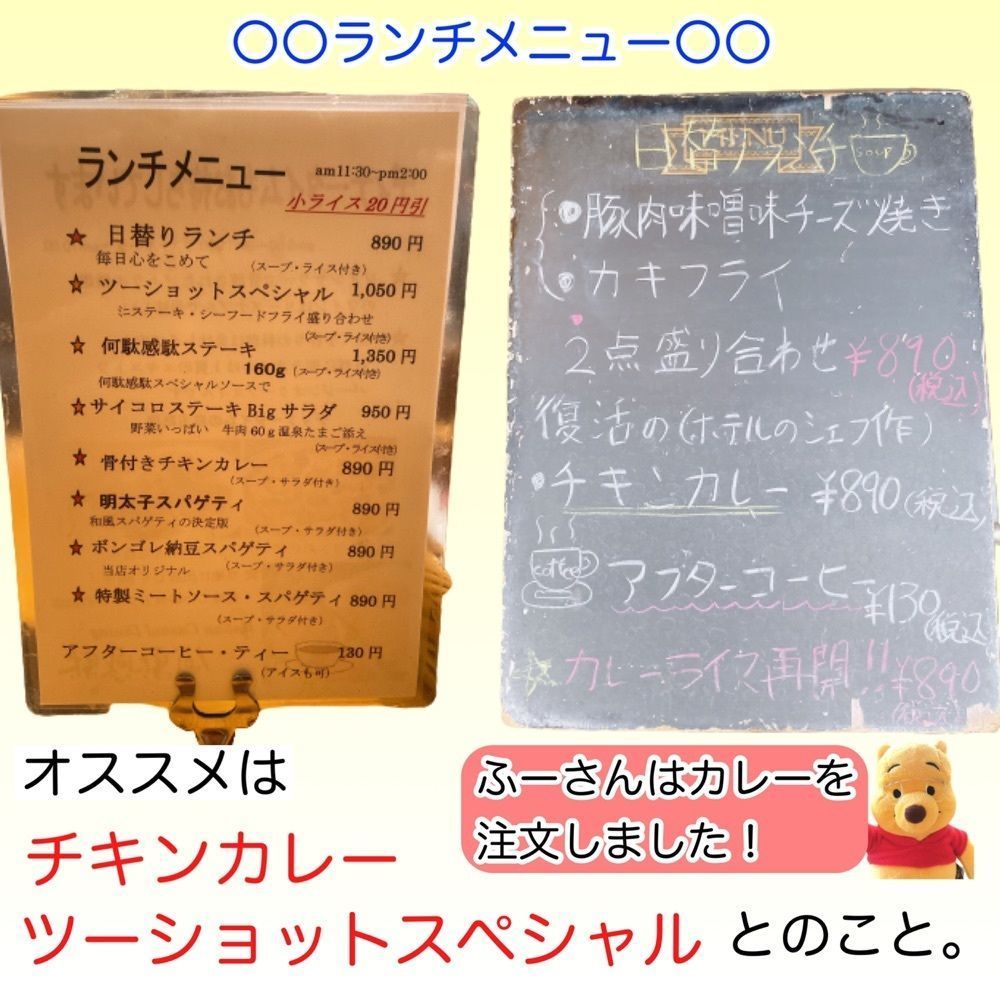 〇〇ランチメニュー〇〇
ランチメニュー am11:30~pm2:00
小ライス20円引
★ 日替りランチ 890円
毎日心をこめて (スープ・ライス付き)
★ ツーショットスペシャル 1,050円
ミニステーキ・シーフードフライ盛り合わせ
(スープ・ライス付き)
★ 何駄感駄ステーキ 1,350円
160g (スープ・ライス付き)
何駄感駄スペシャルソースで
★ サイコロステーキBigサラダ 950円
野菜いっぱい 牛肉60g温泉たまご添え
(スープ・ライス付き)
★ 骨付きチキンカレー 890円
(スープ・サラダ付き)
★ 明太子スパゲティ 890円
和風スパゲティの決定版 (スープ・サラダ付き)
★ ボンゴレ納豆スパゲティ 890円
当店オリジナル (スープ・サラダ付き)
★ 特製ミートソース・スパゲティ 890円
(スープ・サラダ付き)
アフターコーヒー・ティー 130円
(アイスも可)
MENU
日替りランチ SOUP
・豚肉味噌味チーズ焼き
・カキフライ
2点盛り合わせ ¥890
(税込)
復活の(ホテルのシェフ作)
・チキンカレー ¥890(税込)
coffee アフターコーヒー ¥130
(税込)
☆カレーライス再開!! ¥890
(税込)
オススメは
チキンカレー
ツーショットスペシャル とのこと。
ふーさんはカレーを
注文しました！